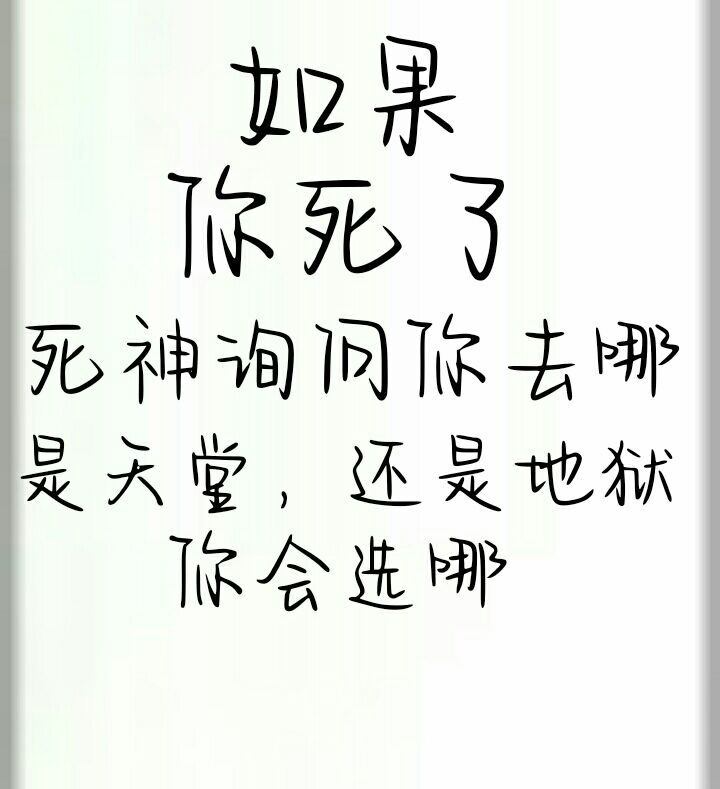 如果
你死了
死神询问你去哪
是天堂，还是地狱
你会选哪